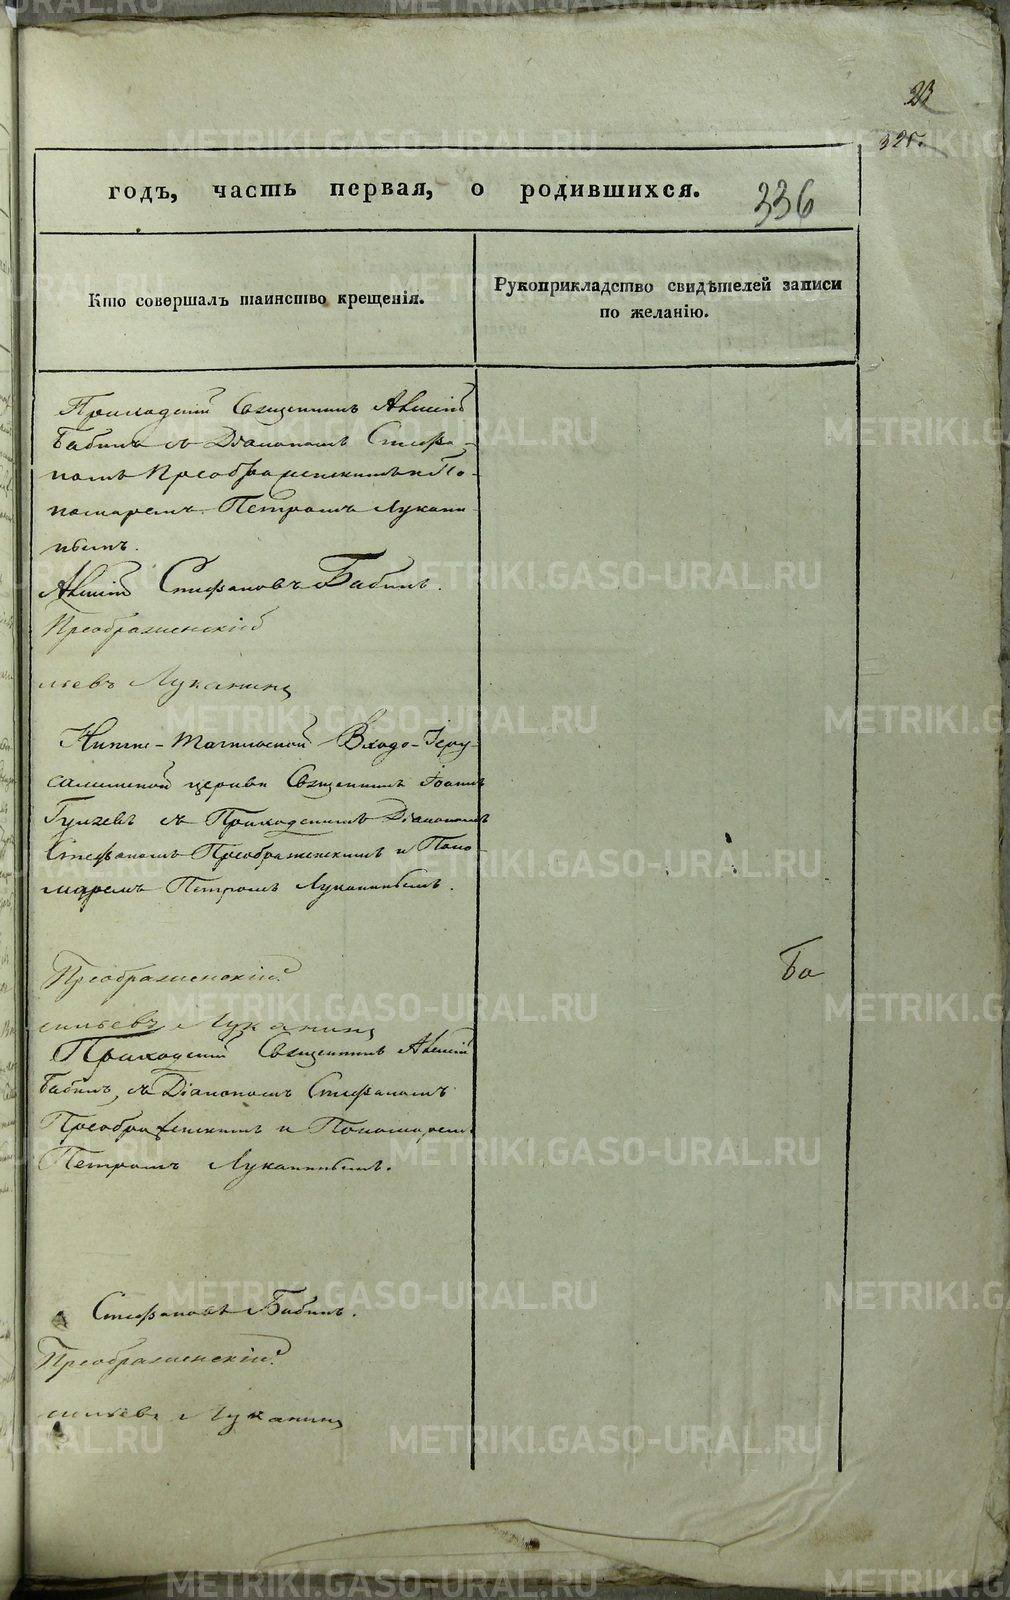 METRIKI.GASO-URAL.RU
23
325.
годъ, часть первая, о родившихся. 336
Кто совершалъ таинство крещенія.
Рукоприкладство свидѣтелей записи
по желанію.
Приходскій Священникъ Алексій
Бабинъ съ Діакономъ Стефа-
номъ Преображенскимъ и По-
номаремъ Петромъ Лукани-
нымъ.
Алексій Стефановъ Бабинъ.
Преображенскій
льевъ Луканинъ
Нижне-Тагильской Входо-Іеру-
салимской церкви Священникъ Іоаннъ
съ Приходскимъ Діакономъ
Стефаномъ Преображенскимъ и Поно-
маремъ Петромъ Луканинымъ.
Преображенскій
Ба
сильевъ Луканинъ
Приходскій Священникъ Алексій
Бабинъ, съ Діакономъ Стефаномъ
Преображенскимъ и Пономаремъ
Петромъ Луканинымъ.
Стефановъ Бабинъ.
Преображенскій
сильевъ Луканинъ